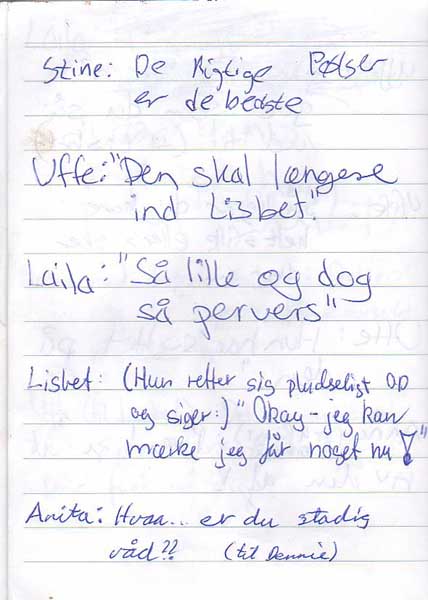 Stine: De Rigtige Pølser
er de bedste
Uffe: "Den skal længere
ind Lisbet."
Laila: "Så lille og dog
så pervers"
Lisbet: (Hun retter sig pludseligt op
og siger:) "Okay - jeg kan
mærke jeg får noget nu!"
Anita: Hvaa... er du stadig
våd?? (til Dennie)